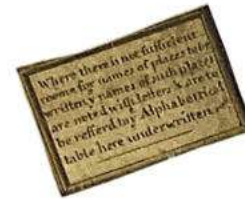 Where there is not sufficient
roome for names of places to be
written, names of such places
are noted with letters & are to
be refferd by Alphabeticol
table here underwritten